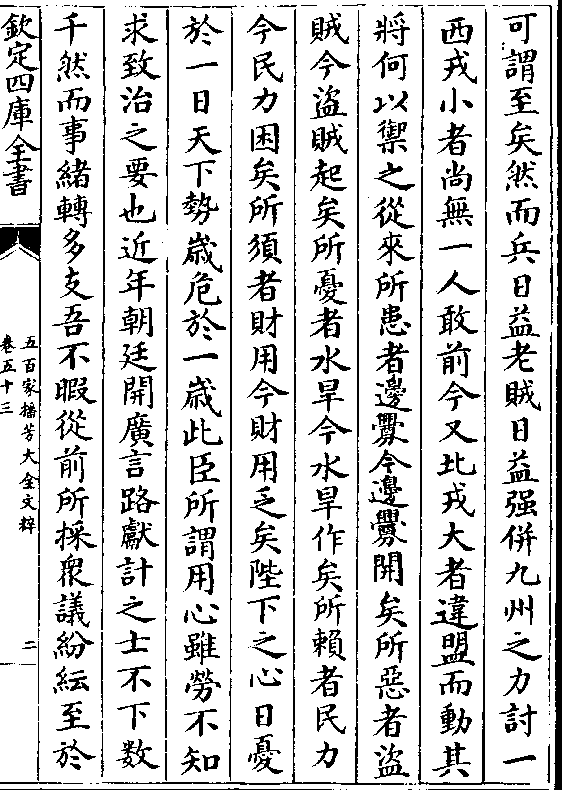 可謂至矣然而兵日益老賊日益强併九州之力討一
西戎小者尚無一人敢前今又北戎大者違盟而動其
將何以禦之從來所患者邊釁今邊釁開矣所惡者盜
賊今盜賊起矣所憂者水旱今水旱作矣所賴者民力
今民力困矣所須者財用今財用乏矣陛下之心日憂
於一日天下勢歳危於一歳此臣所謂用心雖勞不知
求致治之要也近年朝廷開廣言路獻計之士不下数
千然而事緒轉多支吾不暇從前所採衆議紛紜至於
欽定四庫全書
五百家播芳大全文粹
卷五十三
二